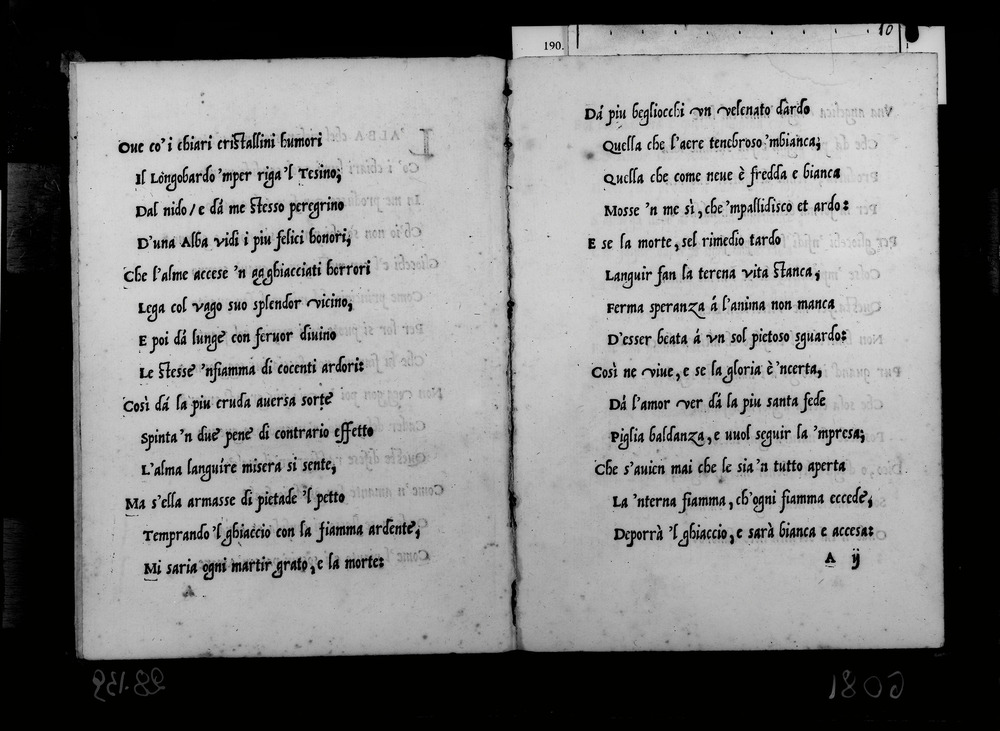 Oue co' i chiari cristallini humori
Il Longobardo 'mper riga 'l Tesino;
Dal nido / e dá me stesso peregrino
D'una Alba vidi i piu felici honori,
Che l'alme accese 'n agghiacciati horrori
Lega col vago suo splendor vicino,
E poi dá lunge con feruor diuino
Le stesse 'nfiamma di cocenti ardori:
Così dá la piu cruda auersa sorte
Spinta 'n due pene di contrario effetto
L'alma languire misera si sente,
Ma s'ella armasse di pietade 'l petto
Temprando 'l ghiaccio con la fiamma ardente,
Mi saria ogni martir grato, e la morte:
190.
10
Dá piu begliocchi vn velenato dardo
Quella che l'aere tenebroso 'mbianca;
Quella che come neue è fredda e bianca
Mosse 'n me sì, che 'mpallidisco et ardo:
E se la morte, sel rimedio tardo
Languir fan la terena vita stanca,
Ferma speranza á l'anima non manca
D'esser beata á vn sol pietoso sguardo:
Così ne viue, e se la gloria è 'ncerta,
Dá l'amor ver dá la piu santa fede
Piglia baldanza, e uuol seguir la 'mpresa;
Che s'auien mai che le sia 'n tutto aperta
La 'nterna fiamma, ch'ogni fiamma eccede,
Deporrà 'l ghiaccio, e sarà bianca e accesa:
A ij
28.139
6081